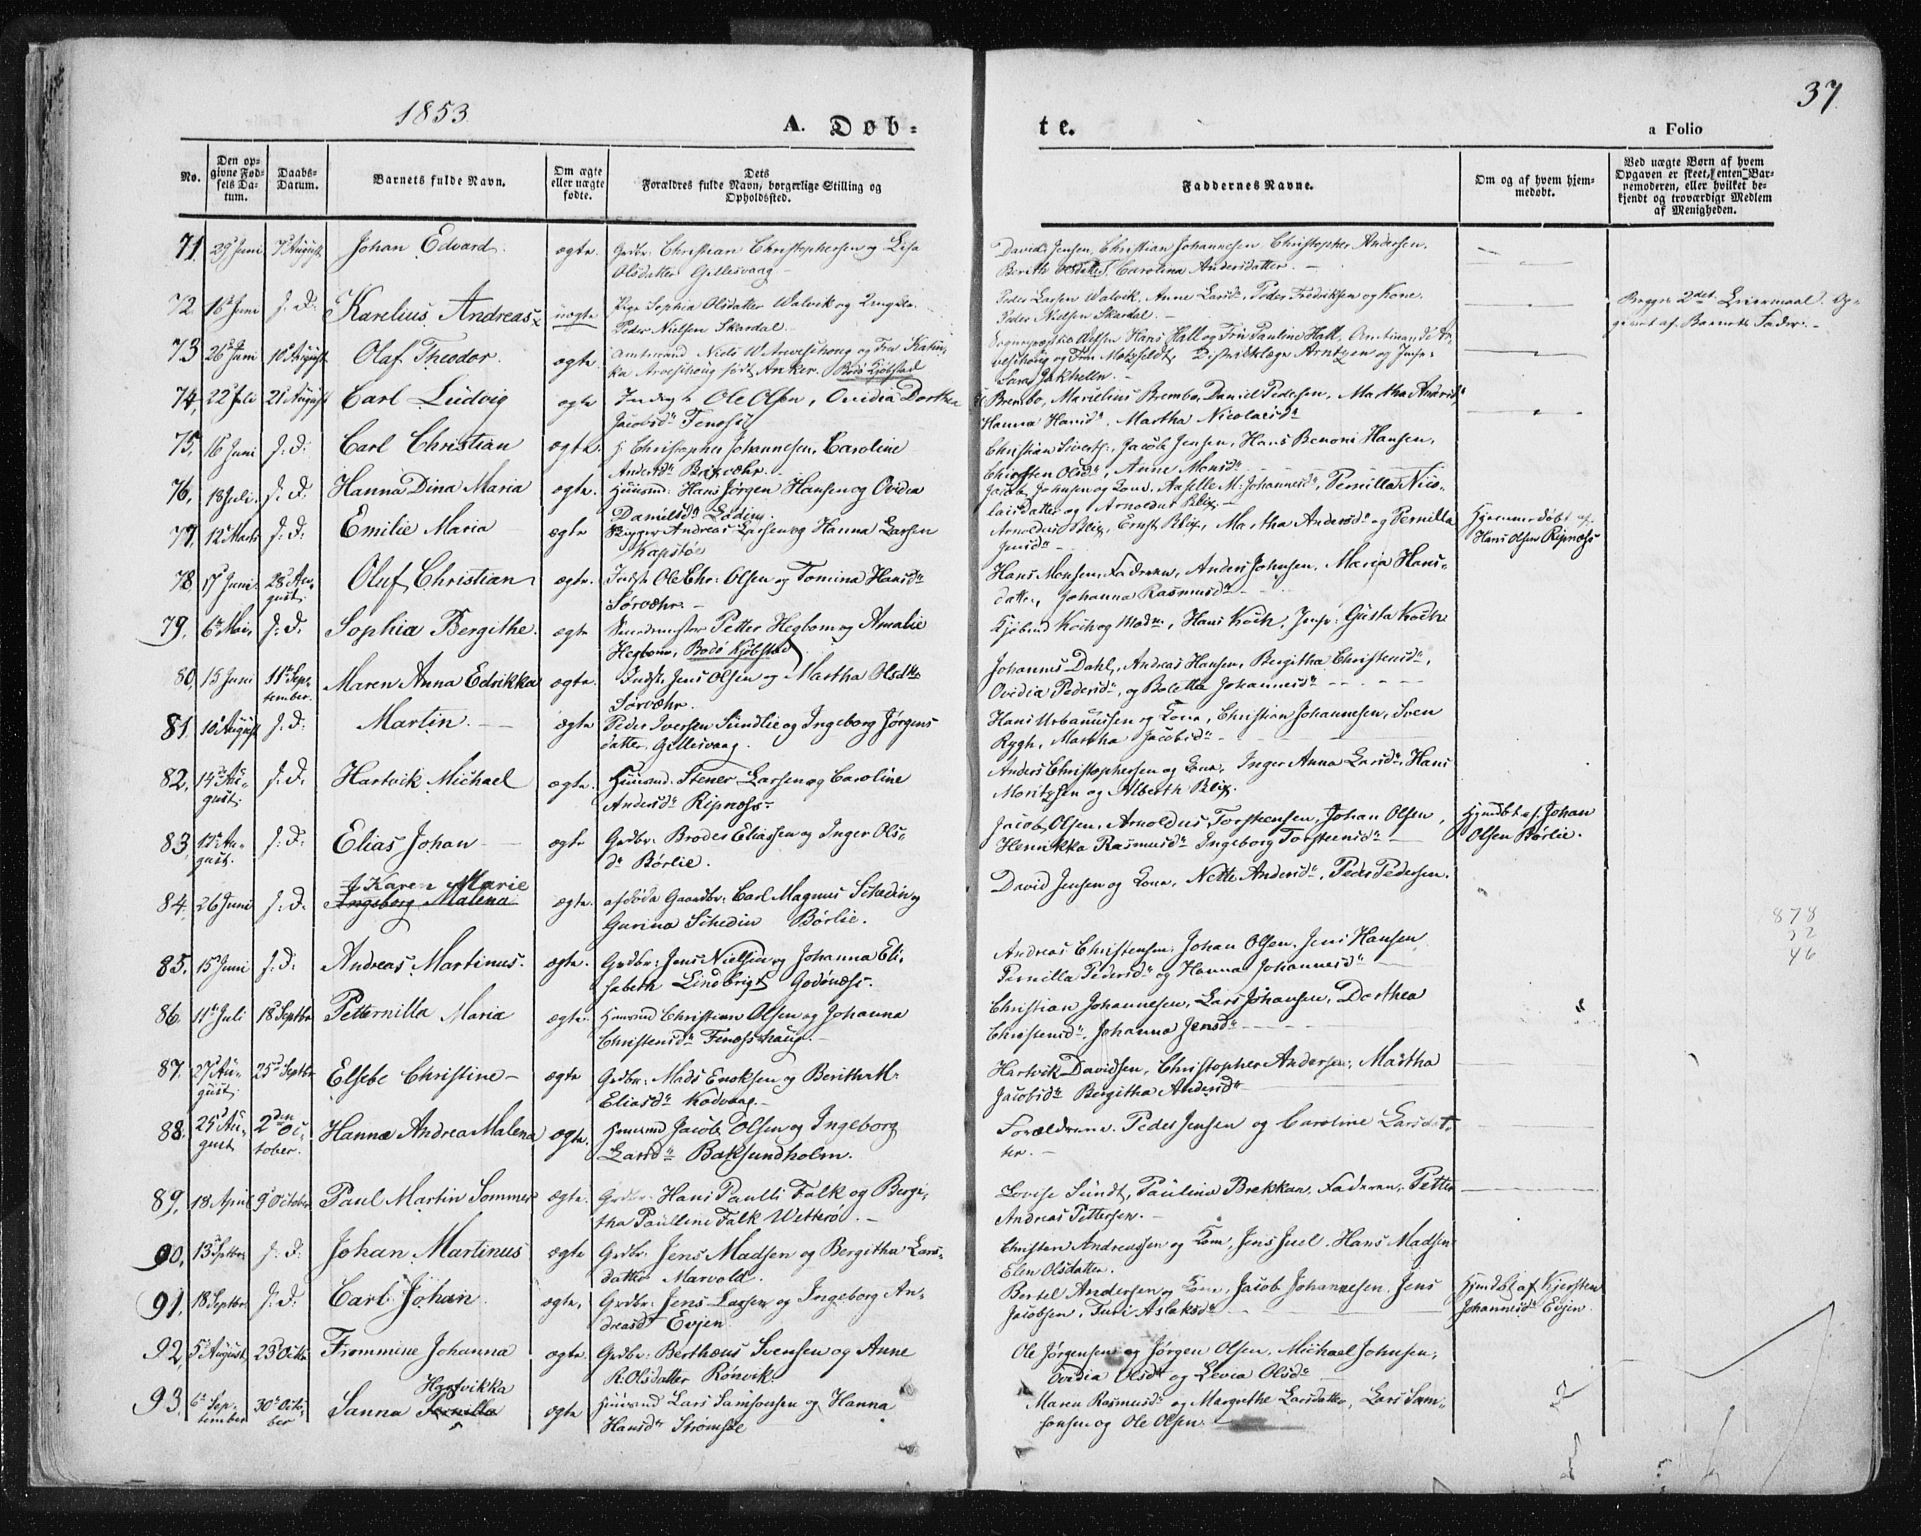 1853
37.
A. Døb-
te.
a Folio
No.
Den op-
givne Fød-
sels Da-
tum.
Daabs-
Datum.
Barnets fulde Navn.
Om ægte
eller uægte
fødte.
Dets
Forældres fulde Navn, borgerlige Stilling og
Opholdssted.
Faddernes Navne.
Om og af hvem hjem-
medøbt.
Ved uægte Børn af hvem
Opgaven er skeet, enten Bar-
nemoderen, eller hvilket be-
kjendt og troværdigt Medlem
af Menigheden.
71. 29 Juni 7 August Johan Edvard. ægte. Grdbr: Christian Christophersen og Lisa
Olsdatter Gillesvaag
David Jensen, Christian Johannesen Christopher Andersen,
Berith Olsdatter, Carolina Andersdatter.
72. 16 Juni s. D. Karelius Andreas uægte Pige Sophia Olsdatter Walvik og Ungkar
Peder Nielsen Skardal.
Peder Larsen Walvik, Anne Larsd, Peder Fredriksen og Kone,
Peder Nielsen Skardal.
Begges 2det Leiermaal. Op-
givet af Barnets Fader.
73 26 Juni 10 August Olaf Theodor. ægte. Amtmand Niels W Arveschoug og Fru Kathin-
ka Arveschoug født Anker. Bodø Kjøbstad
Hans Hall og Fru Pauline Hall, Amtmand Ar-
veschoug og Fru Motzfeldt, Distriktslæge Arntzen og Jomfr
Sara Jakhelln.
74, 22 Juli 21 August Carl Ludvig ægte Inds Ole Olsen, Ovidia Dorthea
Jacobsdr Fenes
Brembo, Marselius Brembo, Daniel Pedersen, Martha Andersd,
Hanna Hansd, Martha Nicolaisdr
75, 16 Juni s. D. Carl Christian ægte. Christopher Johannesen, Caroline
Andersdr
Christian Sivertz, Jacob Jensen, Hans Benoni Hansen,
Olsdr, Anne Monsdr
76, 18 Juli. s. D. Hanna Dina Maria ægte. Huusmd: Hans Jørgen Hansen og Ovidia
Danielsdr Løding.
Jacob Johnsen og Kone, M: Johannesd, Pernilla Nico-
laisdatter og Arnoldus Blix
77, 12 Marts s. D. Emilie Maria ægte Bygger Andreas Larsen og Hanna Larsen
Kapstø
Arnoldus Blix, Ernst Blix, Martha Andersdr og Pernilla
Jensdr
Hjemmedøbt af
Hans Olsen Ripnæss
78, 17 Juni 28 Au-
gust. Oluf Christian ægte. Inds: Ole Chr: Olsen og Tomina Hansdr
Sørvær.
Hans Monsen, Faderen, Anders Johnsen, Maria Hans-
datter, Johanna Rasmusdr
79, 6 Mai, s. D. Sophia Bergithe. ægte Petter Hegbom og Amalie
Hegbom, Bodø Kjøbstad
Kjøbmd Koch og Madm, Hans Koch, Jomfr: Gusta Koch
80, 15 Juni 11te Sep-
tember. Maren Anna Edrikka ægte. Inds: Jens Olsen og Martha Olsdtr
Sørvær.
Johannes Dahl, Andreas Hansen, Bergitha Christensdr,
Ovidia Pedersdr, og Boletta Johannesdr
81. 10 August s. D. Martin. ægte Peder Iversen Sundlie og Ingeborg Jørgens-
datter, Gillesvaag.
Hans Urbanussen og Kone, Christian Johannesen, Sven
Rygh, Martha Jacobsdr
82, 14 Au-
gust s. D. Hartvik Michael ægte. Huusmd: Stener Larsen og Caroline
Andersdr Ripnæss
Anders Christophersen og Kone, Inger Anna Larsdr, Hans
Moritzsen og Alberth Blix.
83, 12 Au-
gust. s. D. Elias Johan ægte Grdbr: Brodes Eliassen og Inger Ols-
dr Børlie.
Jacob Olsen, Arnoldus Torstensen, Johan Olsen,
Henrikka Rasmusdr Ingeborg Torstensdr
Hjmdbt af Johan
Olsen Børlie.
84. 26 Juni s. D. Karen Marie
Ingeborg Malena ægte. afdøde Gaardbr: Carl Magnus Schedin og
Gurina Schedin Børlie.
David Jensen og Kone, Nette Andersdr, Peder Pedersen.
878
32
46
85. 15 Juni s. D. Andreas Martinus. ægte. Grdbr: Jens Nielsen og Johanna Eli-
sabeth Lindbrigt Godønæss.
Andreas Christensen, Johan Olsen, Jens Hansen
Pernilla Pedersdr og Hanna Johannesdr
86. 11te Juli 18 Septbr Petternilla Maria ægte. Huusmd Christian Olsen og Johanna
Christensdr Fenæsshaug.
Christian Johannesen, Lars Johansen, Dorthea
Christensdr, Johanna Jensdr
87. 27 Au-
gust 25 Septbr Elsebe Christine ægte Grdbr: Mads Enoksen og Berith M:
Eliasdr Kodvaag.
Hartvik Davidsen, Christopher Andersen, Martha
Jacobsdr Bergitha Andersdr
88. 25 Au-
gust 2den Oc-
tober. Hanna Andrea Malena ægte. Huusmd Jacob Olsen og Ingeborg
Larsdr Baksundholm.
Forældrene. Peder Jensen og Caroline Larsdat-
ter.
89, 18 April 9 October Paul Martin Sommer ægte. Grdbr: Hans Paulli Falk og Bergi-
tha Pauline Falk Wetterø.
Lovise Sundt, Pauline Brekkan, Faderen, Petter
Andreas Pettersen.
90, 13 Septbr s. D. Johan Martinus ægte Grdbr: Jens Madsen og Bergitha Lars-
datter Marvold.
Christen Andreassen og Kone, Jens Juel, Hans Madsen
Elen Olsdatter.
91, 18 Septbr s. D. Carl Johan ægte, Grdbr: Jens Larsen og Ingeborg An-
dreasd Evjen.
Bertel Andersen og Kone, Jacob Johannesen, Jens
Jacobsen, Aslaksdr
Hjmdbt af Kjersten
Johannesdr Evjen.
92, 5 August, 23 Octbr Frommine Johanna ægte. Grdbr: Berthæus Svensen og Anne
R. Olsdatter Rønvik.
Ole Jørgensen og Jørgen Olsen, Michael Johnsen,
Ovidia Olsdr og Levia Olsdr
93. 6 Sep-
tember 30 Octo-
ber Hartvikka
Sanna Pernilla ægte Huusmd Lars Samsonsen og Hanna
Hansdr Strømsøe
Maren Rasmusdr og Margrethe Larsdatter, Lars Sam-
sonsen og Ole Olsen.